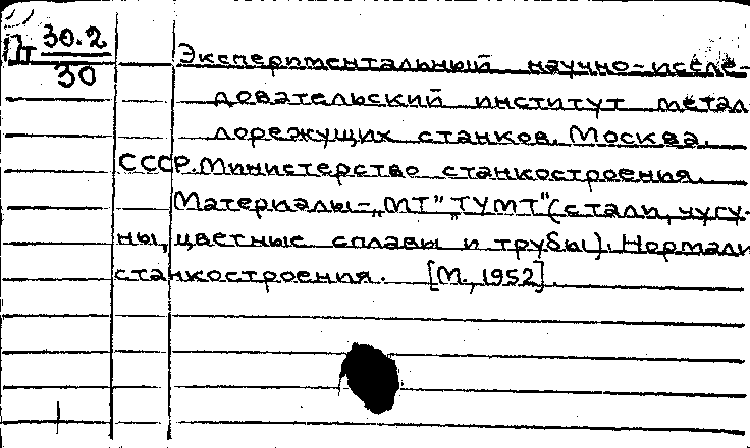 Пт 30.2
30
Экспериментальный научно-иссле-
довательский институт метал
лорежущих станков. Москва.
СССР. Министерство станкостроения.
Материалы-„МТ" „ТУМТ" (стали, чугу-
ны, цветные сплавы и трубы). Нормали
станкостроения. [М., 1952].